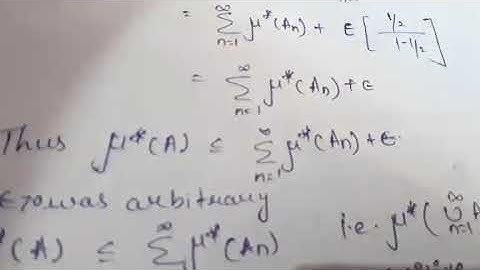 = ∑_{n=1}^{∞} μ*(An) + ε [ (1/2)/(1-1/2) ]
= ∑_{n=1}^{∞} μ*(An) + ε
Thus μ*(A) ≤ ∑_{n=1}^{∞} μ*(An) + ε.
ε>0 was arbitrary
*(A) ≤ ∑^{∞} μ*(An) i.e. μ*(∪_{n=1}^{∞} A